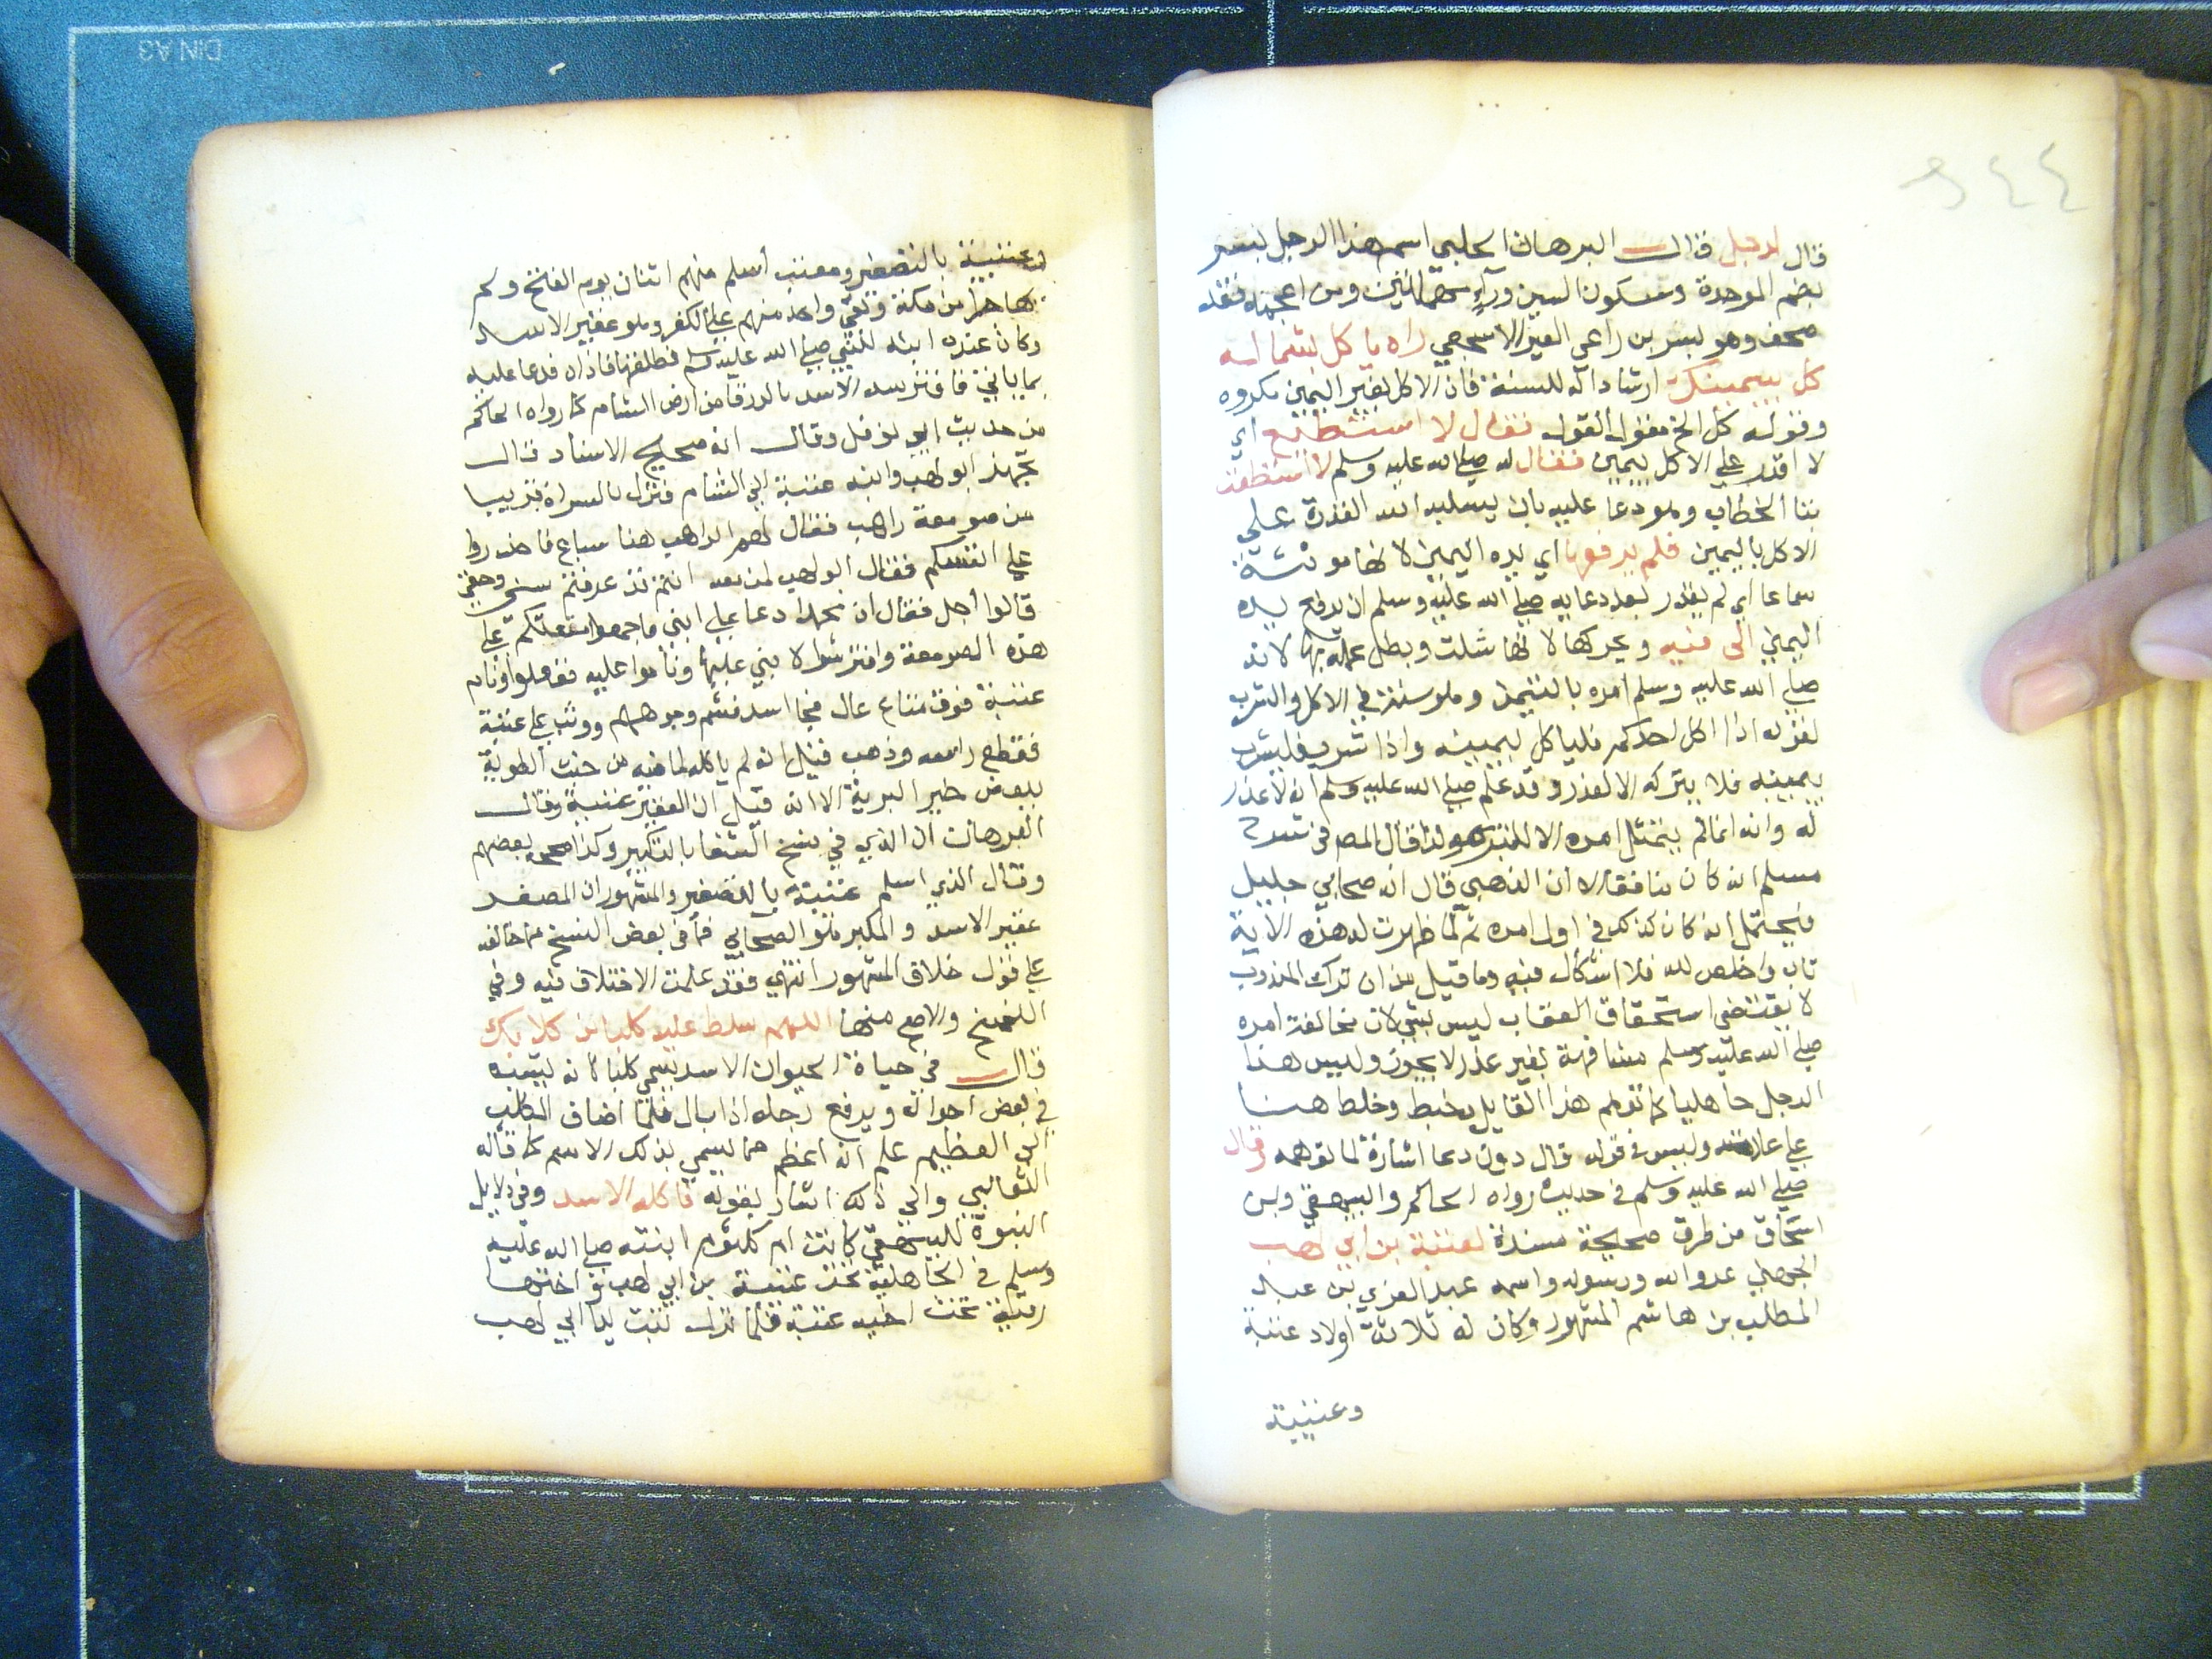 قال لرجل قال البرهان الحلبي اسم هذا الرجل بسر
بضم الموحدة وسكون السين ورآء مهملتين ومن اعجمه فقد
صحف وهو بسر بن راعي العير الاشجعي راه ياكل بشماله
كل بيمينك ارشادا له للسنة فان الاكل بغير اليمين مكروه
وقوله كل الخ مقول القول فقال لا استطيع اي
لا اقدر علي الاكل بيمين فقال له صلي الله عليه وسلم لا استطعت
بتا الخطاب وهو دعا عليه بان يسلبه الله القدرة علي
الاكل باليمين فلم يرفعها اي يده اليمين لانها مونثة
سماعا اي لم يقدر بعد دعايه صلي الله عليه وسلم ان يرفع يده
اليمين الى فيه ويحركها لانها شلت وبطل عمله بها لانه
صلي الله عليه وسلم امره بالتيمن وهو سنة في الاكل والشرب
لقوله اذا اكل احدكم فلياكل بيمينه واذا شرب فليشرب
بيمينه فلا يتركه الا لعذر وقد علم صلي الله عليه وسلم انه لا عذر
له وانه انما لم يمتثل امره الا للتكبر ولذا قال المص في شرح
مسلم انه كان منافقا الا ان الذهبي قال انه صحابي جليل
فيحتمل انه كان كذلك في اول امره ثم لما ظهرت له هذه الآية
تاب واخلص لله فلا اشكال فيه وما قيل من ان ترك المندوب
لا يقتضي استحقاق العقاب ليس بشي لان مخالفة امره
صلي الله عليه وسلم مشافهة بغير عذر لا يجوز وليس هذا
الرجل جاهليا كما توهم هذا القايل بخبط وخلط هنا
علي عادته وليس في قوله قال دون دعا اشارة لما توهمه وقال
صلي الله عليه وسلم في حديث رواه الحاكم والبيهقي وبن
اسحاق من طرق صحيحة مسندة لعتبة بن ابي لهب
الجهنمي عدو الله ورسوله واسمه عبد العزي بن عبد
المطلب بن هاشم المشهور وكان له ثلاثة اولاد عتبة
وعتيبة
وعتيبة بالتصغير ومعتب أسلم منهم اثنان يوم الفتح ولم
يهاجرا من مكة وبقي واحد منهم علي الكفر وهو عقير الاسد
وكان عنده ابنة للنبي صلي الله عليه وسلم فطلقها فاذاه فدعا عليه
بما ياتي فافترسه الاسد بالزرقا من ارض الشام كما رواه الحاكم
من حديث ابي نوفل وقال انه صحيح الاسناد قال
تجهز ابو لهب وابنه عتبة الي الشام فنزل بالسراة قريبا
من صومعة راهب فقال لهم الراهب هنا سباع فاحذروا
علي انفسكم فقال ابو لهب لمن معه انتم قد عرفتم سني وحقي
قالوا أجل فقال ان محمدا دعا علي ابني فاجمعوا متعتكم علي
هذه الصومعة وافترشوا لابني عليها وناموا عليه ففعلوا ونام
عتبة فوق متاع عال فجا اسد فشم وجوههم ووثب علي عتبة
فقطع راسه وذهب فقيل انه لم ياكله لما فيه من خبث الطوية
ببغض خير البرية الا انه قيل ان العقير عتبة وقال
البرهان ان الذي في نسخ الشفا بالتكبير وكذا صححه بعضهم
وقال الذي اسلم عتيبة بالتصغير والمشهور ان المصغر
عقير الاسد والمكبر هو الصحابي فما في بعض النسخ مما خالفه
علي قول خلاف المشهور انتهي فقد علمت الاختلاف فيه وفي
النسخ والاصح منها اللهم سلط عليه كلبا من كلابك
قال في حياة الحيوان الاسد يسمي كلبا لانه يشبهه
في بعض احواله ويرفع رجله اذا بال فلما اضاف الكلب
الي العظيم علم انه اعظم مما يسمي بذلك الاسم كما قاله
الثعالبي والي ذلك اشار بقوله فاكله الاسد وفي دلايل
النبوة للبيهقي كانت ام كلثوم ابنته صلي الله عليه
وسلم في الجاهلية تحت عتيبة بن ابي لهب واختها
رقية تحت اخيه عتبة فلما نزلت تبت يدا ابي لهب